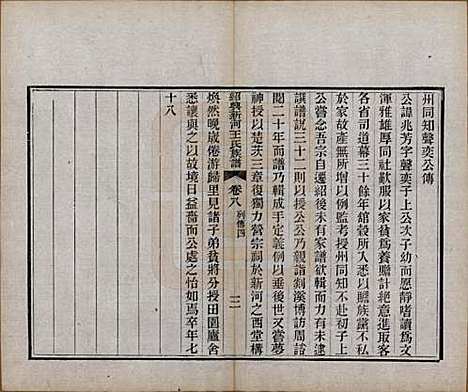 州同知聲奕公傳
公諱兆芳字聲奕子上公次子幼而愿靜嗜讀爲文
渾雅雄厚同社歎服以家貧爲養贍計絕意進取客
各省司道幕三十餘年舘穀所入悉以贍族黨不私
於家故產無所增以例監考授州同知不赴初子上
公嘗念吾宗自遷紹後未有家譜欲輯而公又未逮
譔譜說三十二則以授公公乃親詣剡溪博訪周諮
閱二十年而譜乃輯成手定義例以垂後世又嘗夢
神授以楚茨三章復獨力營宗祠於新河之西堂構
紹興新河王氏族譜 卷八 列傳四 三
煥然晚歲倦游歸里見諸子弟貧將分授田園廬舍
悉讓與之以故境日益嗇而公處之怡如焉卒年七
十八